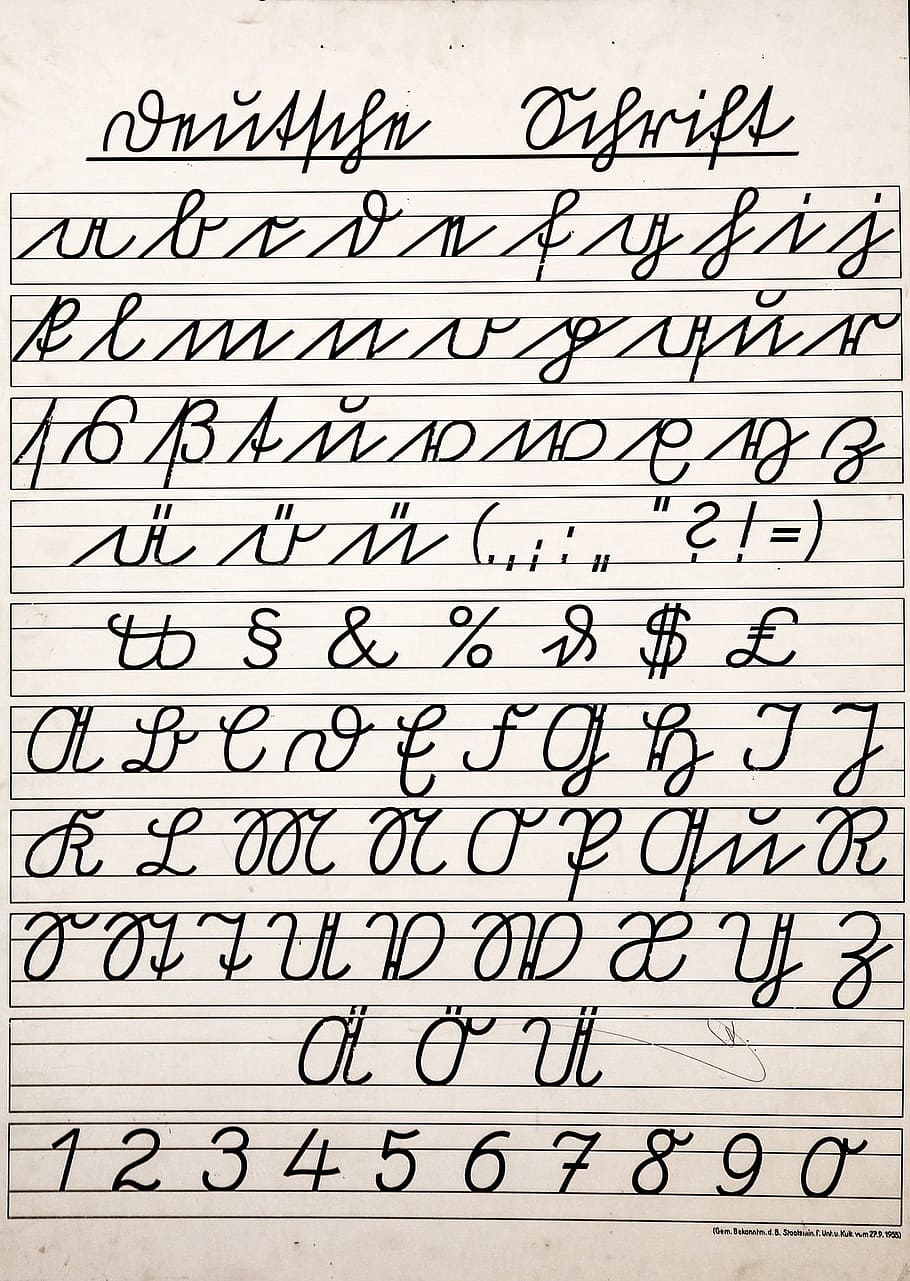 Deutſche Schrift
a b c d e f g h i j
k l m n o p qu r
ſ s ß t u v w x y z
ä ö ü (.,;: „ " ?!=)
℔ § & % ₰ $ £
A B C D E F G H I J
K L M N O P Qu R
S St T U V W X Y Z
Ä Ö Ü
1 2 3 4 5 6 7 8 9 0
(Gem. Bekanntm. d. B. Staatsmin. f. Unt. u. Kult. vom 27.9.1955)